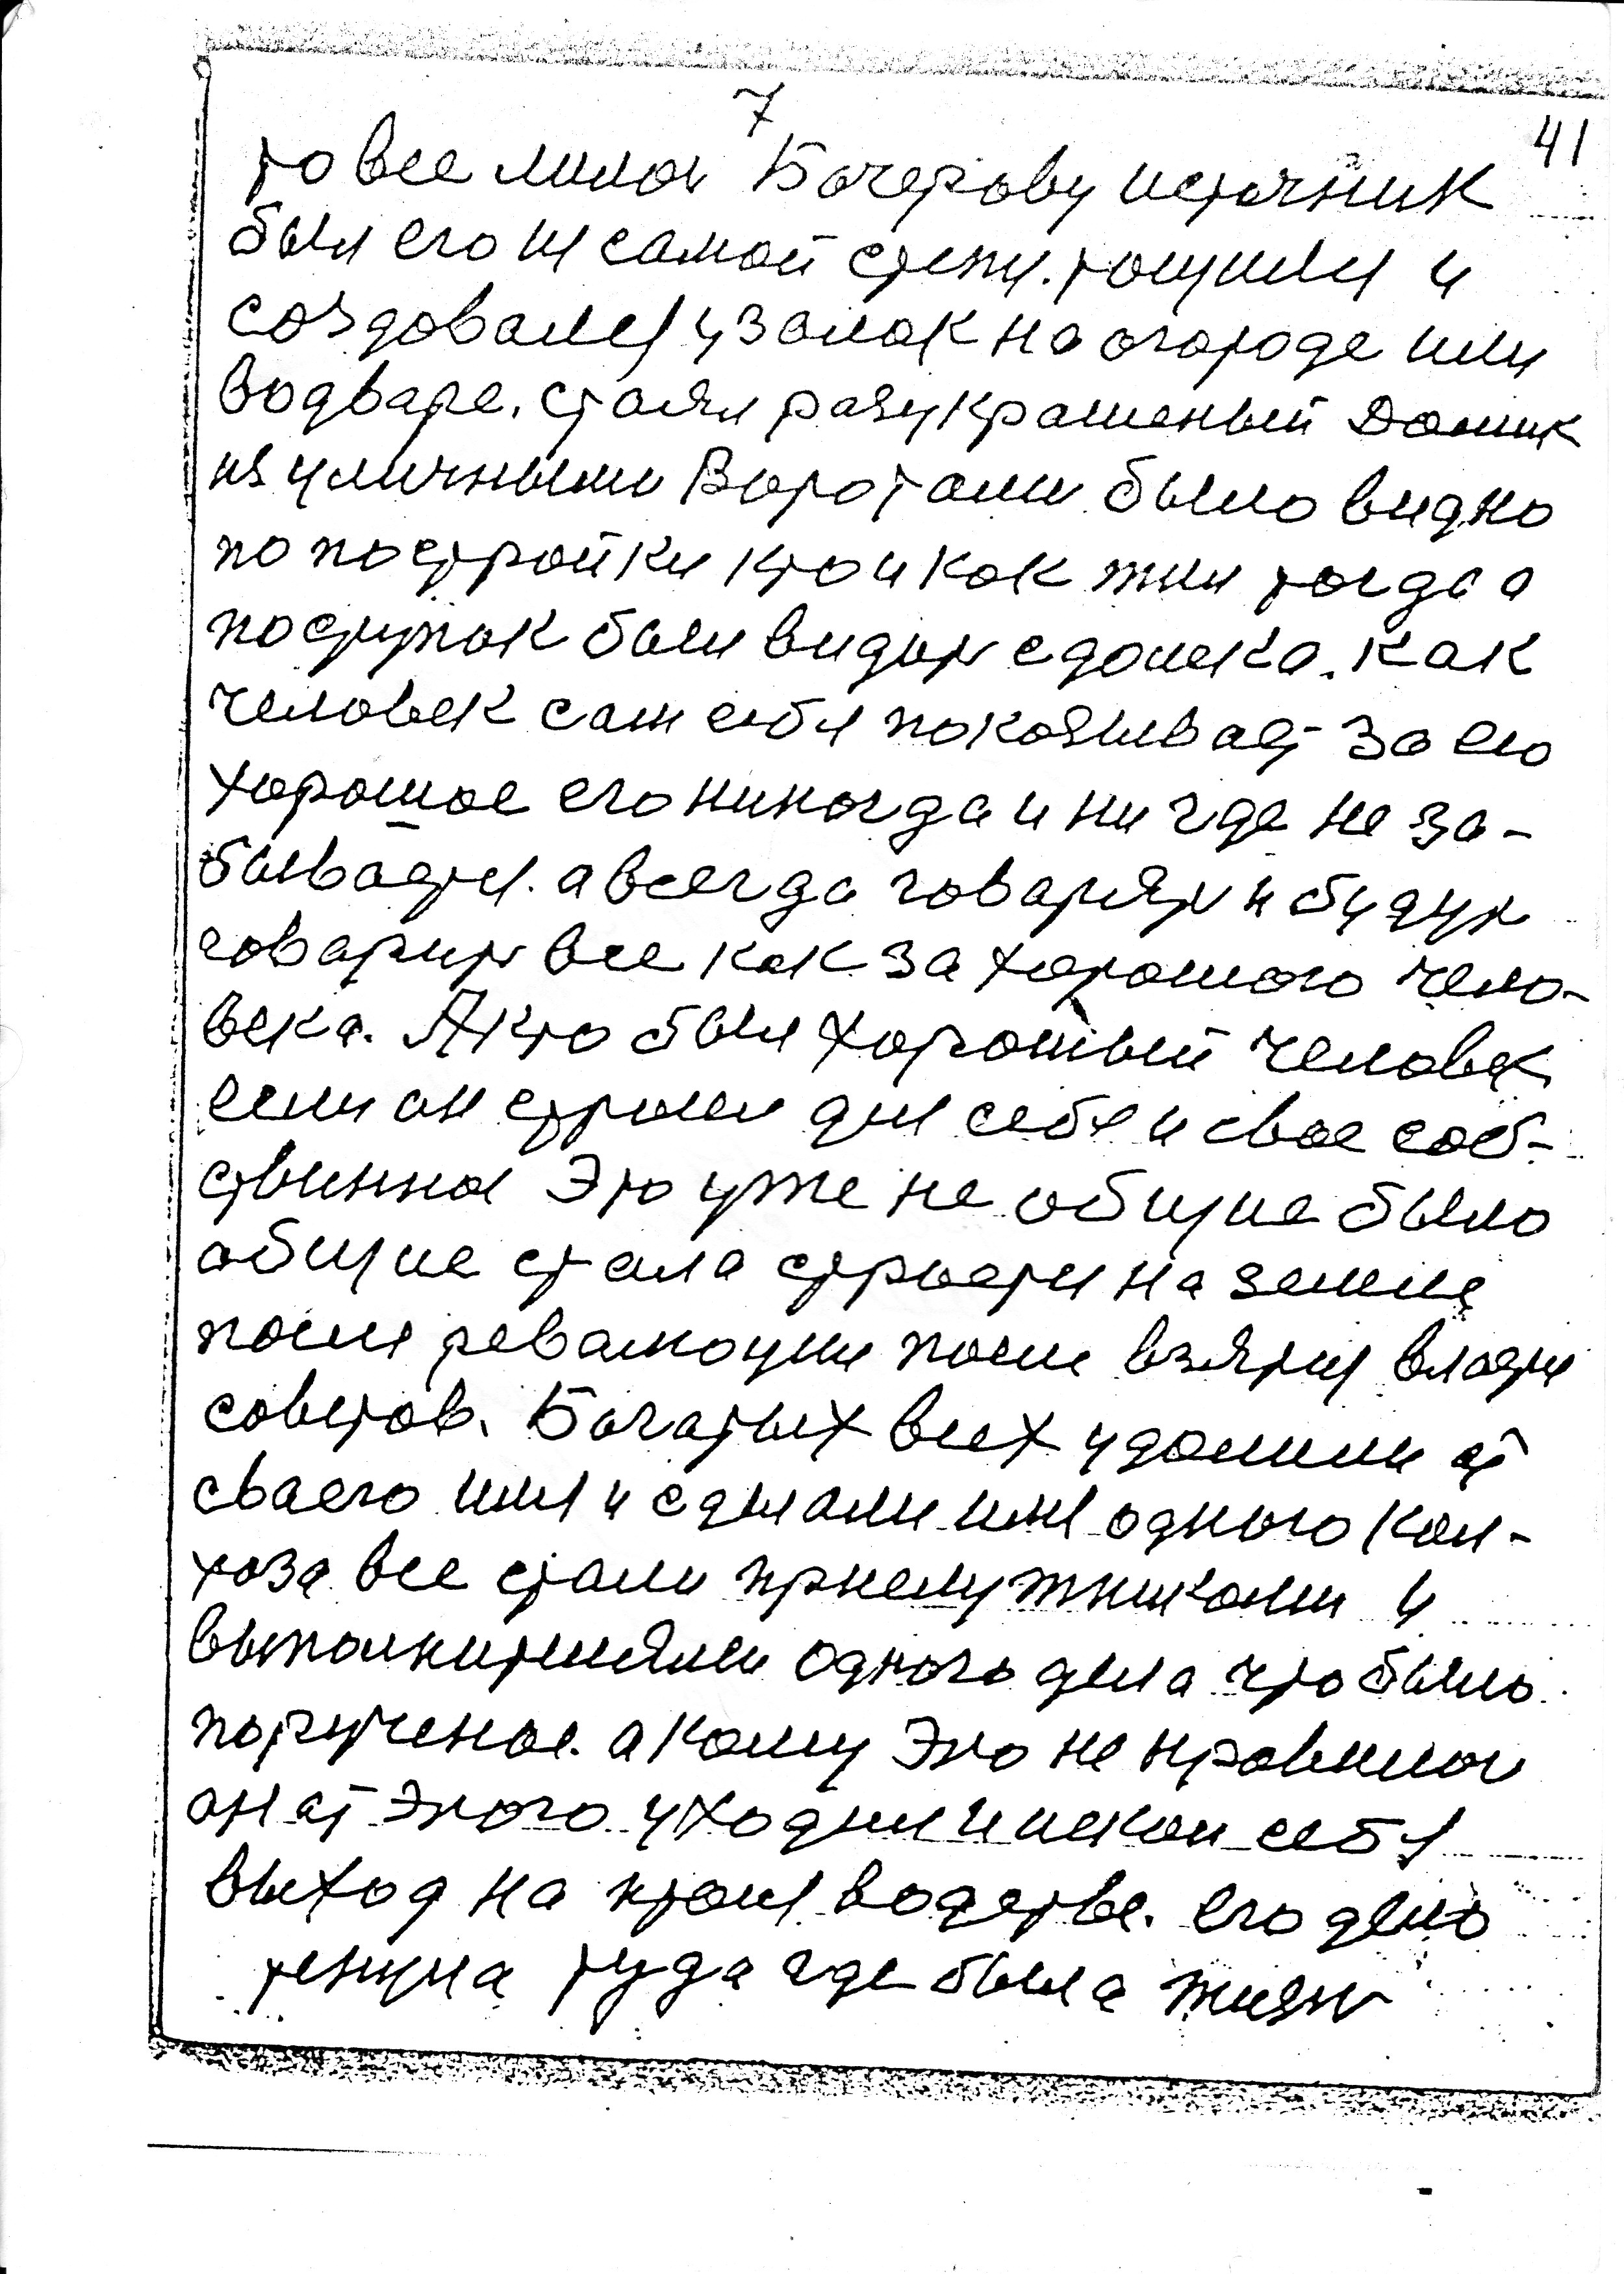 7
41
то все лилось Бочерову источник
был его и самой степи. тощился и
создовался узолок на огороде или
водваре. стоял разукрашеный Домик
из уличными Воротами было видно
по постройки кто и как жил тогда а
поступок был виден с далека. как
человек сам себя показывает за его
хорошое его никогда и ни где не за-
бывается. а всегда говарят и будут
говарить все как за хорошого чело-
века. А кто был хороший человек
если он строил для себя и свое соб-
ственное Это уже не общие было
общие стала строется на земле
после революции после взятия власти
советов. Богатых всех удалили от
сваего имя и сделали имя одного кол-
хоза все стали прислужниками и
выполнителями одного дела что было
порученое. а кому Это не нравилось
он от Этого уходил и искал себя
выход на производстве. его дело
тянула туда где была жизнь